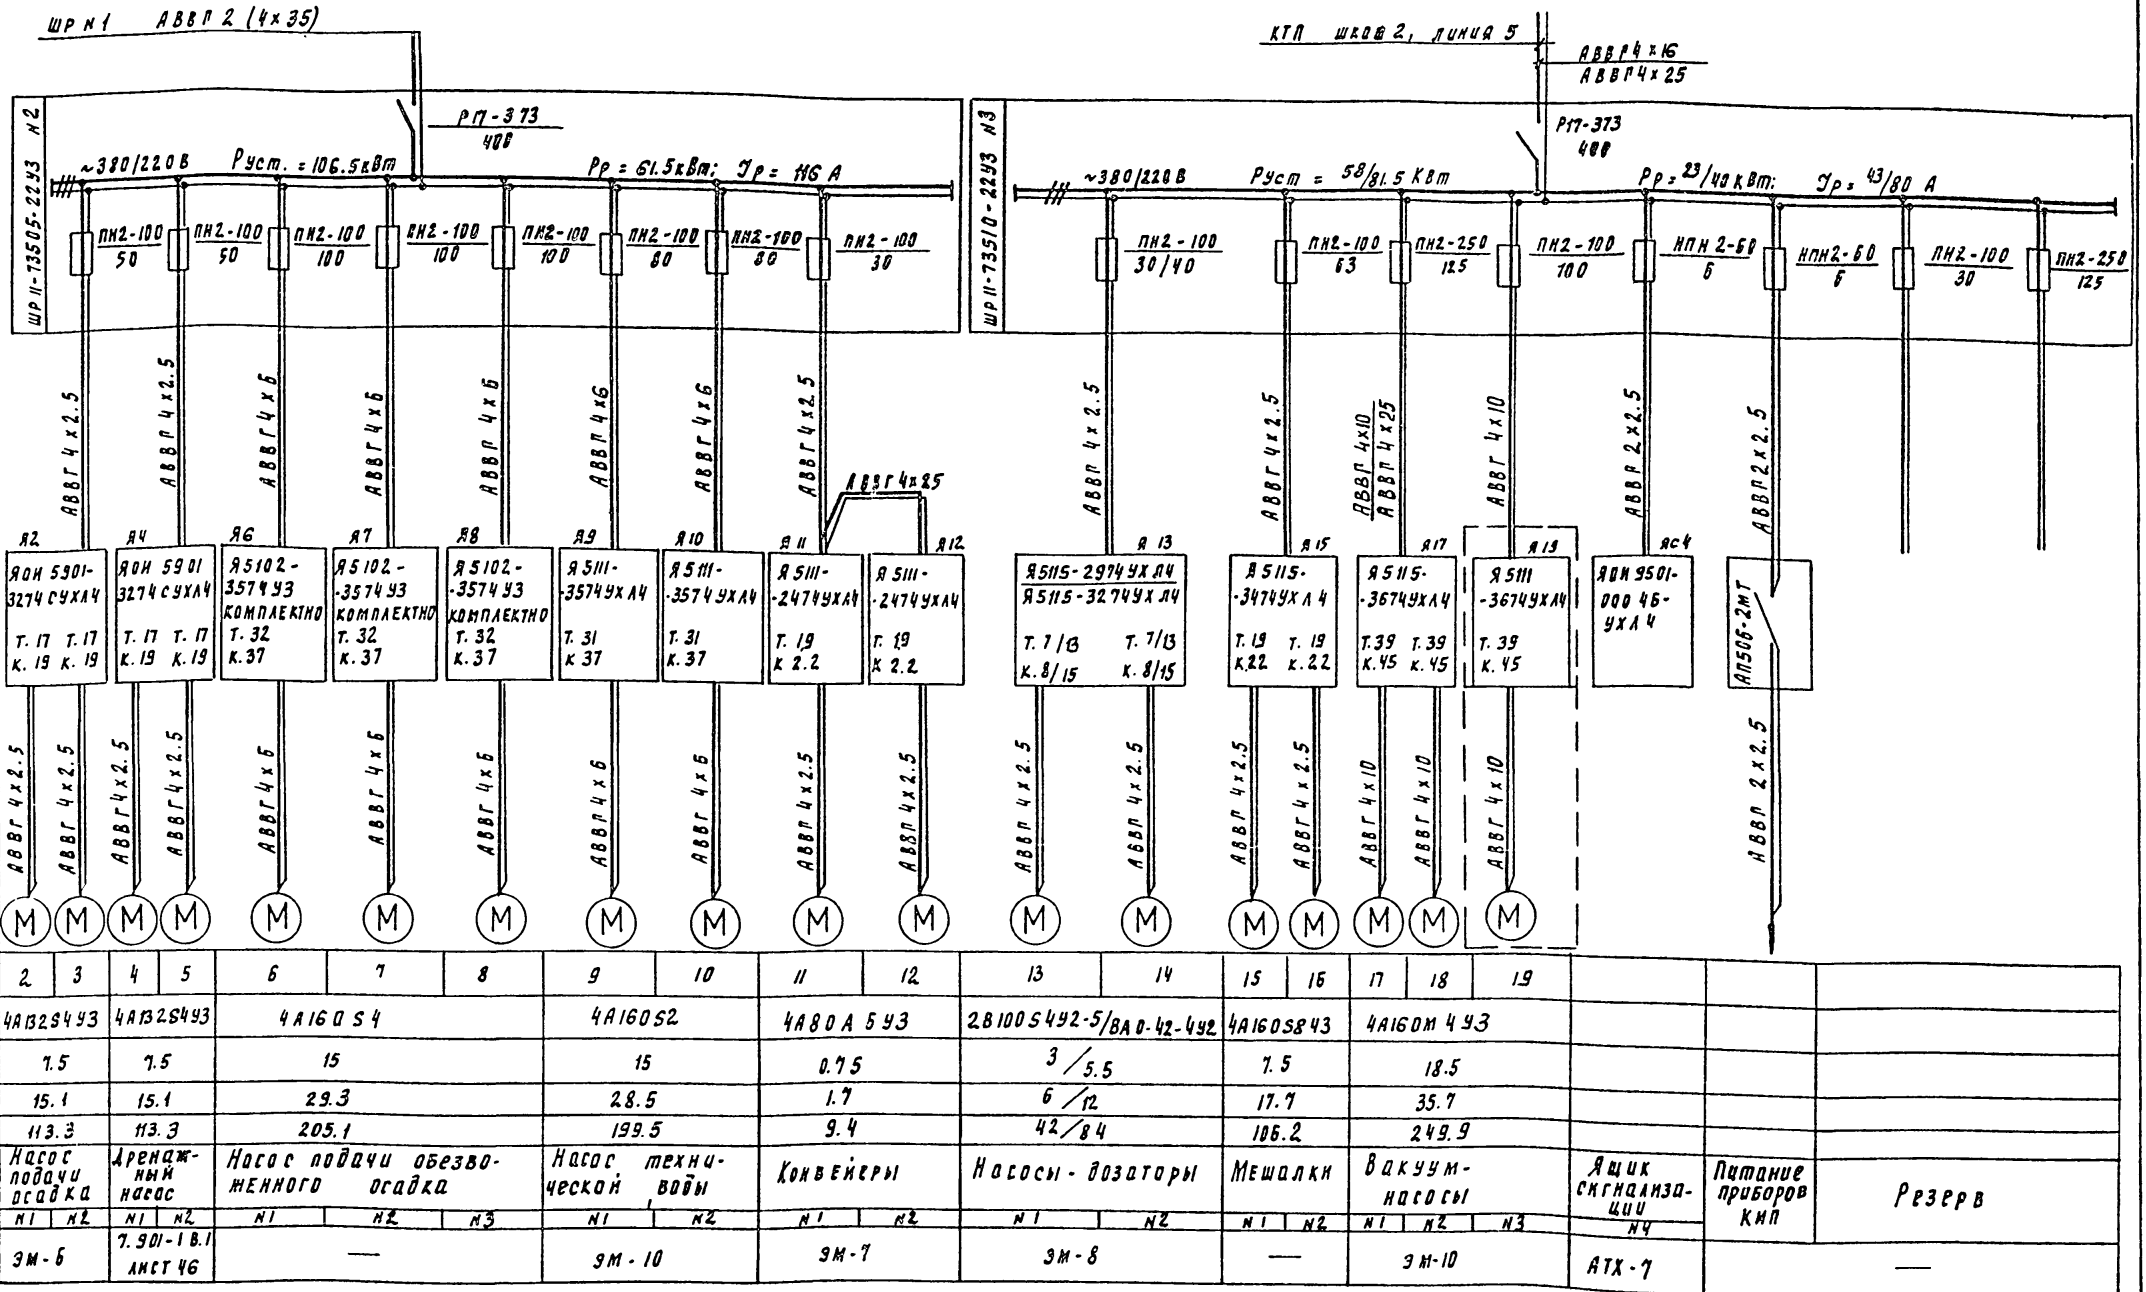 ШР N1 АВВГ 2 (4×35)
КТП шкаф 2, линия 5
АВВГ 4×16
АВВГ 4×25
ШР11-73505-22У3 N2
Р17-373
400
~380/220 В Руст. = 106.5 кВт Рр = 61.5 кВт; Iр = 116 А
ПН2-100 ПН2-100 ПН2-100 ПН2-100 ПН2-100 ПН2-100 ПН2-100 ПН2-100
50 50 100 100 100 80 80 30
ШР11-73510-22У3 N3
Р17-373
400
~380/220 В Руст = 58/81.5 кВт Рр = 23/40 кВт; Iр = 43/80 А
ПН2-100 ПН2-100 ПН2-250 ПН2-100 НПН2-60 НПН2-60 ПН2-100 ПН2-250
30/40 63 125 100 6 6 30 125
АВВГ 4×2.5 АВВГ 4×2.5 АВВГ 4×6 АВВГ 4×6 АВВГ 4×6 АВВГ 4×6 АВВГ 4×6 АВВГ 4×2.5
АВВГ 4×25
АВВГ 4×2.5 АВВГ 4×2.5 АВВГ 4×10 АВВГ 4×25 АВВГ 4×10 АВВГ 2×2.5 АВВГ 2×2.5
Я2 Я4 Я6 Я7 Я8 Я9 Я10 Я11 Я12 Я13 Я15 Я17 Я19 ЯС4
ЯОИ 5901-
3274 СУХЛ4
Т. 17 Т. 17
К. 19 К. 19
ЯОИ 5901
3274 СУХЛ4
Т. 17 Т. 17
К. 19 К. 19
Я5102-
3574 У3
КОМПЛЕКТНО
Т. 32
К. 37
Я5102-
-3574 У3
КОМПЛЕКТНО
Т. 32
К. 37
Я5102-
-3574 У3
КОМПЛЕКТНО
Т. 32
К. 37
Я5111-
-3574УХЛ4
Т. 31
К 37
Я5111-
-3574УХЛ4
Т. 31
К. 37
Я5111-
-2474УХЛ4
Т. 1,9
К 2.2
Я5111-
-2474УХЛ4
Т. 1,9
К 2.2
Я5115-2974УХЛ4
Я5115-3274УХЛ4
Т. 7/13 Т. 7/13
К. 8/15 К. 8/15
Я5115-
-3474УХЛ4
Т. 19 Т. 19
К.22 К. 22
Я5115-
-3674УХЛ4
Т.39 Т.39
К.45 К.45
Я5111
-3674УХЛ4
Т. 39
К. 45
ЯОИ 9501-
000 4Б-
УХЛ4
АП50Б-2МТ
АВВГ 4×2.5 АВВГ 4×2.5 АВВГ 4×2.5 АВВГ 4×2.5 АВВГ 4×6 АВВГ 4×6 АВВГ 4×6 АВВГ 4×6 АВВГ 4×6 АВВГ 4×2.5 АВВГ 4×2.5 АВВГ 4×2.5 АВВГ 4×2.5 АВВГ 4×2.5 АВВГ 4×2.5 АВВГ 4×10 АВВГ 4×10 АВВГ 4×10 АВВГ 2×2.5
М М М М М М М М М М М М М М М М М М
2 3 4 5 6 7 8 9 10 11 12 13 14 15 16 17 18 19
4А132S4У3 4А132S4У3 4А160S4 4А160S2 4А80А5У3 2В100S4У2-5/ВАО-42-4У2 4А160S8У3 4А160М4У3
7.5 7.5 15 15 0.75 3/5.5 7.5 18.5
15.1 15.1 29.3 28.5 1.7 6/12 17.7 35.7
113.3 113.3 205.1 199.5 9.4 42/84 106.2 249.9
Насос
подачи
осадка
Дренаж-
ный
насос
Насос подачи обезво-
женного осадка
Насос техни-
ческой воды
Конвейеры
Насосы-дозаторы
Мешалки
Вакуум-
насосы
Ящик
сигнализа-
ции
Питание
приборов
КИП
Резерв
N1 N2 N1 N2 N1 N2 N3 N1 N2 N1 N2 N1 N2 N1 N2 N1 N2 N3 N4
ЭМ-6
7.901-1 В.1
ЛИСТ 46
—
ЭМ-10
ЭМ-7
ЭМ-8
—
ЭМ-10
АТХ-7
—